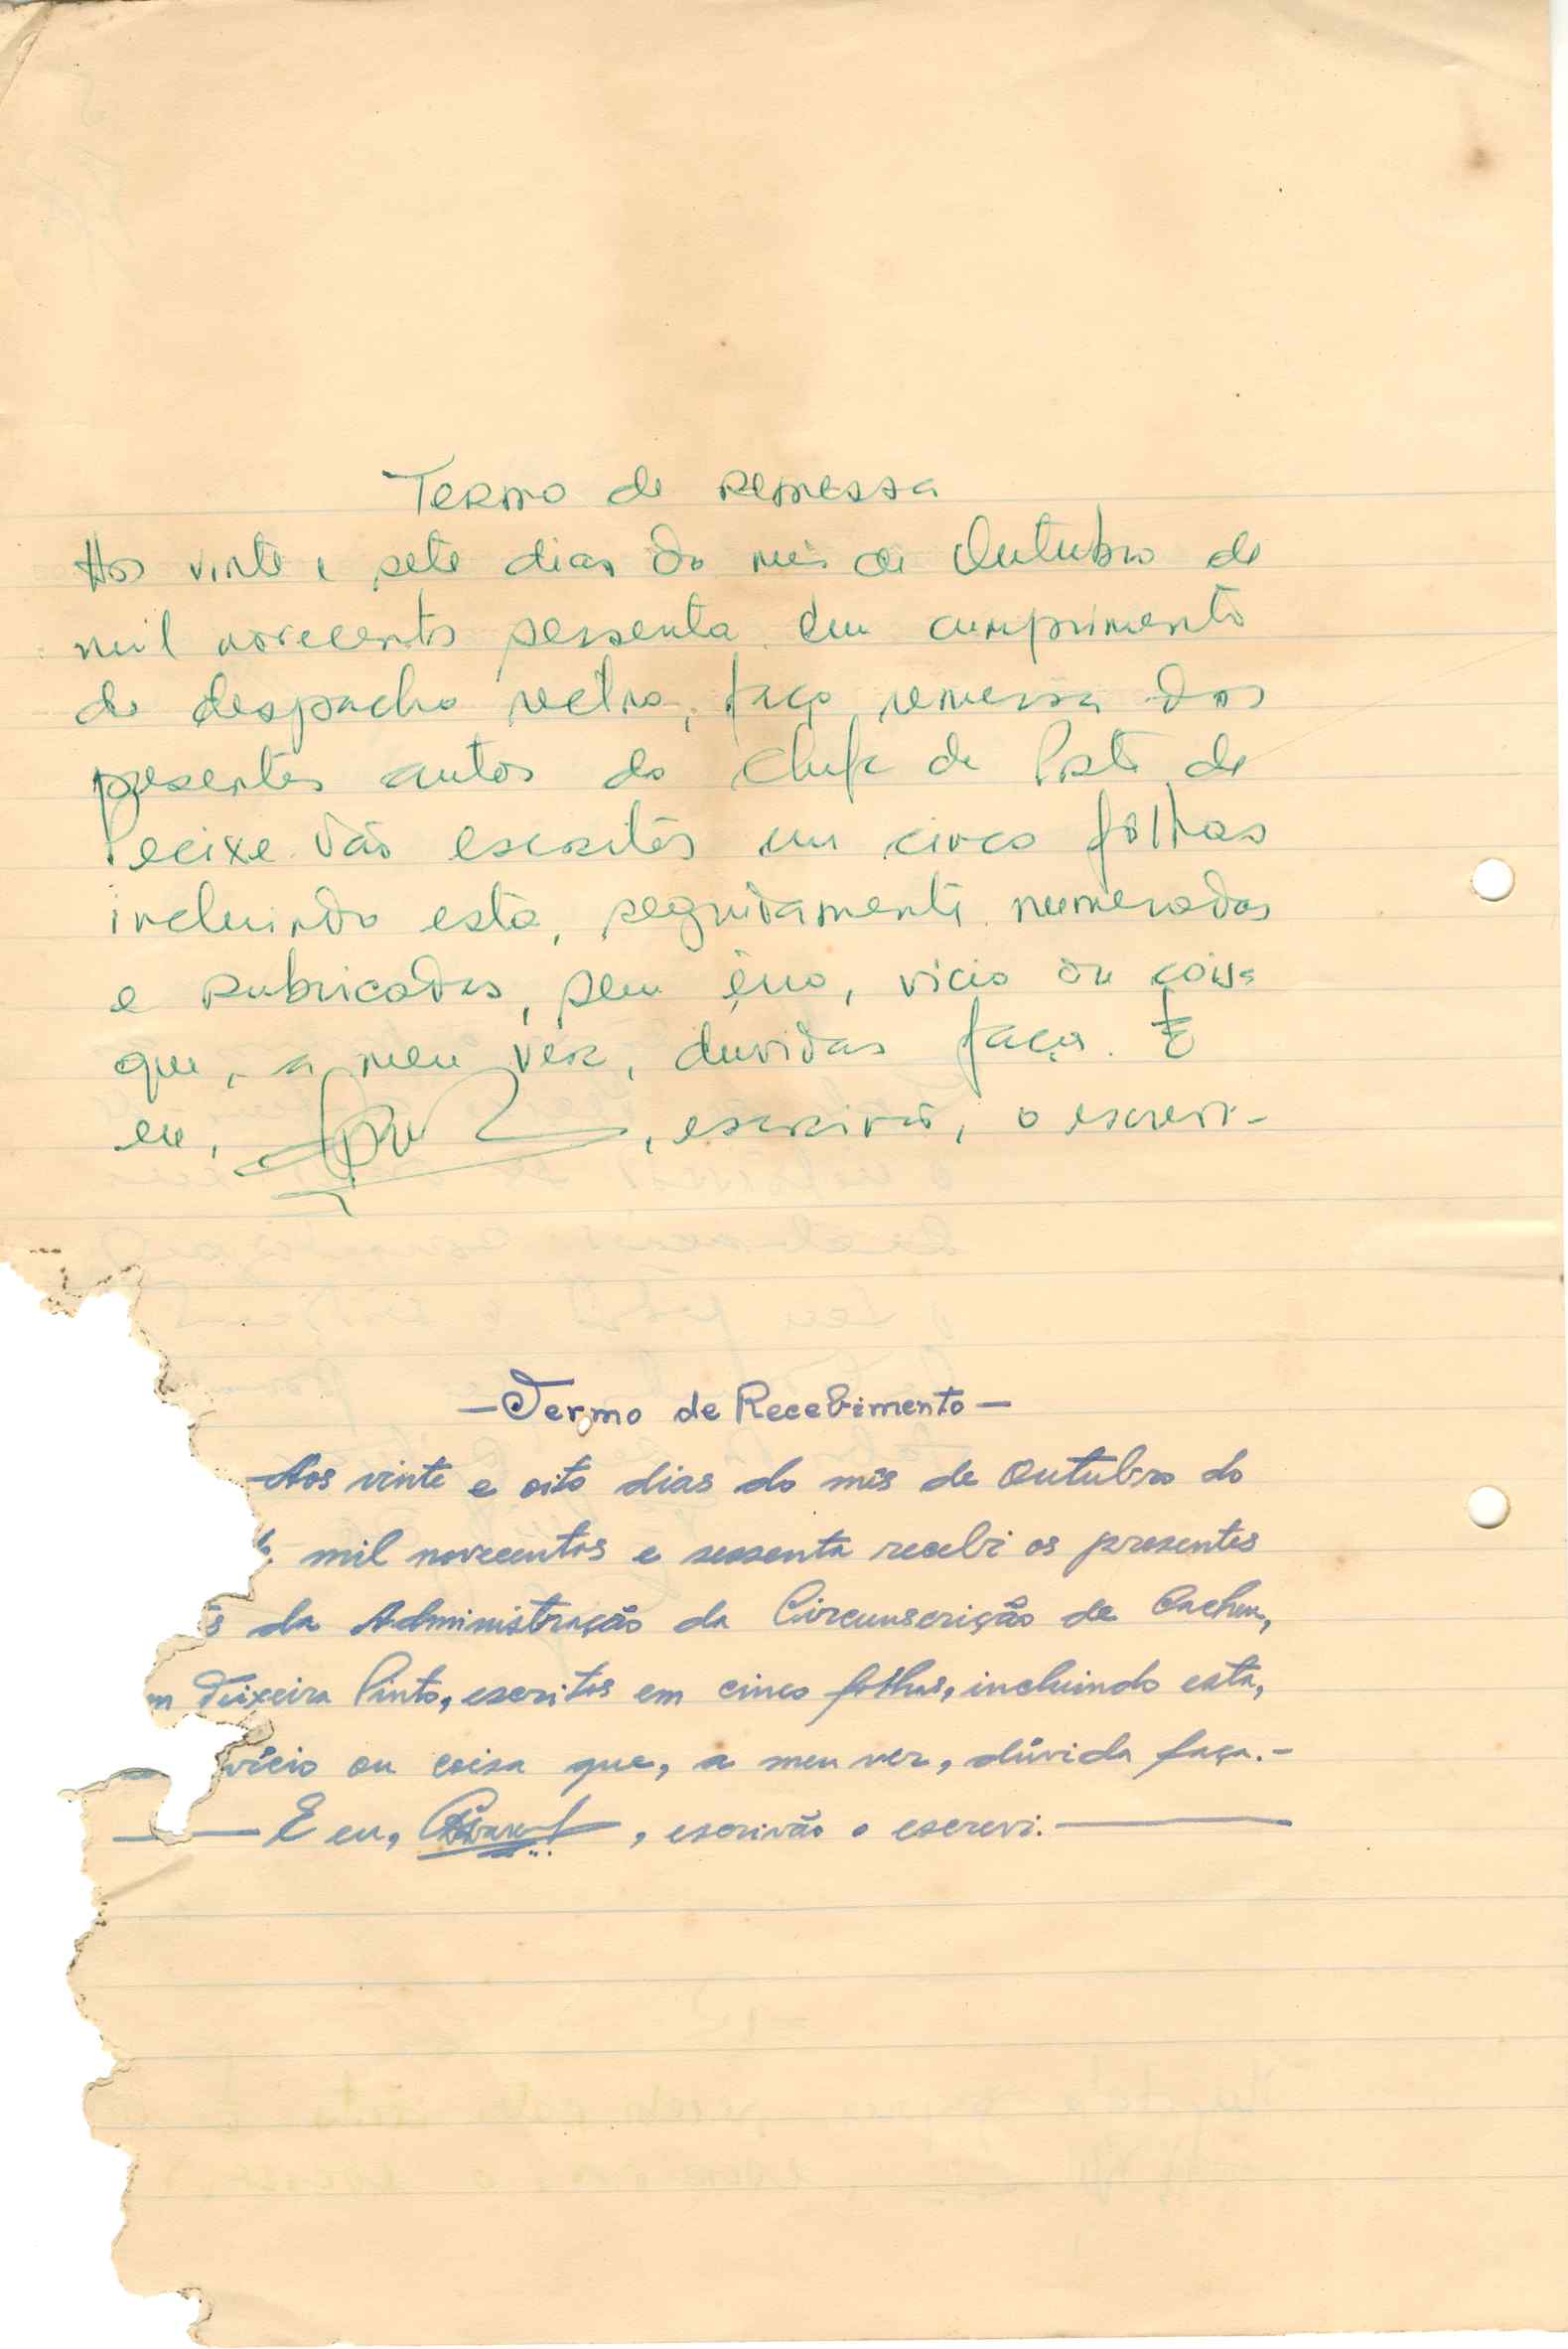 Termo de remessa
Aos vinte e sete dias do mês de Outubro de
mil novecentos sessenta em cumprimento
do despacho rectro, faço remessa dos
presentes autos ao Chefe de Posto de
Pecixe. Vão escritos em cinco fôlhas
incluindo esta, seguidamente numeradas
e rubricadas, sem êrro, vicio ou coisa
que, a meu vêr, duvidas faça. E
eu, , escrivão, o escrevi-
—Termo de Recebimento—
Aos vinte e oito dias do mês de Outubro do
mil novecentos e sessenta recebi os presentes
s da Administração da Circunscrição de Cacheu,
m Teixeira Pinto, escritos em cinco fôlhas, incluindo esta,
vício ou coisa que, a meu ver, dúvida faça.-
— E eu, , escrivão o escrevi. —